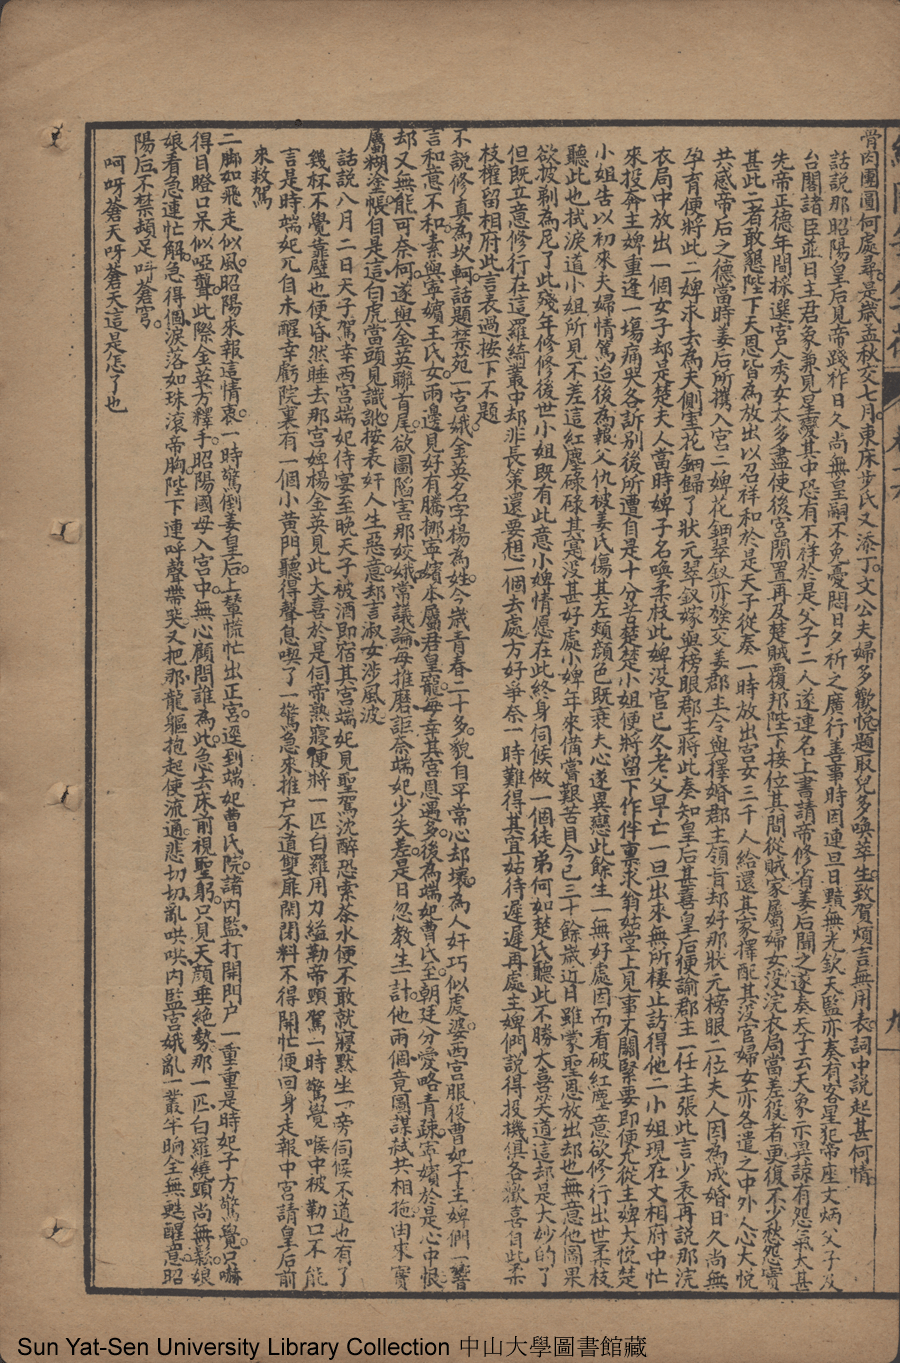 骨肉團圓何處尋。是歲孟秋交七月。東床步氏又添丁。文公夫婦多歡悅。題取兒多喚萃生。致賀煩言無用表。詞中說起甚何情。
話說那昭陽皇后見帝踐祚日久尚無皇嗣不免憂悶日夕祈之廣行善事時因連旦日黯無光欽天監亦奏有客星犯帝座文炳父子及
台閣諸臣並曰主君象兼見星變其中恐有不祥於是父子二人遂連名上書請帝修省姜后聞之遂奏天子云天象示異諒有怨氣太甚
先帝正德年間採選宮人秀女太多盡使後宮閒置再及楚賊覆邦陛下接位其間從賊家屬婦女沒浣衣局當差役者更復不少愁怨實
甚此二者敢懇陛下大恩皆為放出以召祥和於是天子從奏一時放出宮女三千人給還其家擇配其沒官婦女亦各遣之中外人心大悅
共感帝后之德當時姜后所攜入宮二婢花鈿翠釵亦發交姜郡主令與擇婚郡主領旨却好那狀元榜眼二位夫人因為成婚日久尚無
孕育便將此二婢求去為夫側室花鈿歸了狀元翠釵嫁與榜眼郡主將此奏知皇后甚喜皇后便諭郡主一任主張此言少表再說那浣
衣局中放出一個女子却是楚夫人當時婢子名喚柔枝此婢沒官已久老父早亡一旦出來無所棲止訪得他二小姐現在文相府中忙
來投奔主婢重逢一場痛哭各訴別後所遭自是十分苦楚楚小姐便將留下作伴稟求翁姑堂上見事不關緊要即便允從主婢大悅楚
小姐告以初來夫婦情篤迨後為報父仇被姜氏傷其左頰顏色既衰夫心遂異戀此餘生一無好處因而看破紅塵意欲修行出世柔枝
聽此也拭淚道小姐所見不差這紅塵碌碌其是沒甚好處小婢年來備嘗艱苦目今已三十餘歲近日雖蒙聖恩放出却也無意他圖果
欲披剃為尼了此殘年修修後世小姐既有此意小婢情愿在此終身伺候做一個徒弟何如楚氏聽此不勝大喜笑道這却是大妙的了
但既立意修行在這羅綺叢中却非長策還要想一個去處方好爭奈一時難得其宜姑待遲遲再處主婢們說得投機俱各歡喜自此柔
枝權留相府此言表過按下不題
不說修真為坎軻。話題禁苑一宮娥。金英名字楊為姓。今歲青春二十多。貌自平常心却壞。為人奸巧似虔婆。西宮服役曹妃子。主婢們一響
言和意不和。素與寧嬪王氏女。兩邊見好有騰挪。寧嬪本屬君皇寵。每幸其宮恩遇多。後為端妃曹氏至。朝廷分愛略青疎。寧嬪於是心中恨
却又無能可奈何。遂與金英聯首尾。欲圖陷害那姣娥。常議論每推磨。詎奈端妃少失差。是日忽教生一計。他兩個竟圖謀弒共相拖。由來實
屬糊塗帳。自是這白虎當頭見識訛。按表奸人生惡意。却言淑女涉風波。
話說八月二日天子駕幸西宮端妃侍宴至晚天子被酒即宿其宮端妃見聖駕沈醉恐索茶水便不敢就寢默坐一旁伺候不道也有了
幾杯不覺靠壁也便昏然睡去那宮婢楊金英見此大喜於是伺帝熟寢便將一匹白羅用力縊勒帝頸駕一時驚覺喉中被勒口不能
言是時端妃兀自未醒幸虧院裏有一個小黃門聽得聲息喫了一驚急來推戶不道雙扉閑閉料不得開忙便回身走報中宮請皇后前
來救駕
二脚如飛走似風。昭陽來報這情衷。一時驚倒姜皇后。上輦慌忙出正宮。逕到端妃曹氏院。諸內監打開門戶一重重。是時妃子方驚覺。只嚇
得目瞪口呆似啞聾。此際金英方釋手。昭陽國母入宮中。無心顧問誰為此。急去床前視聖躬。只見天顏垂絕勢。那一匹白羅繞頸尚無鬆。娘
娘看急連忙解。急得個淚落如珠滾帝胸。陛下連呼聲帶哭。又把那龍軀抱起便流通。悲切切。亂哄哄。內監宮娥亂一叢。半晌全無甦醒意。昭
陽后不禁頓足叫蒼穹。
呵呀蒼天呀蒼天這是怎了也
Sun Yat-Sen University Library Collection 中山大學圖書館藏